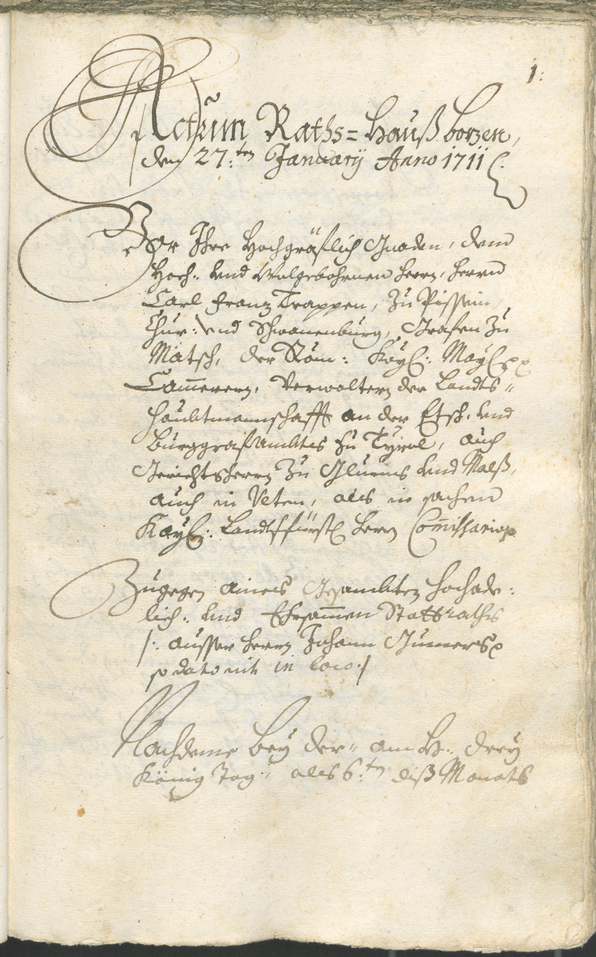 1.
Actum Raths=Hauß bozen,
den 27.ten January Anno 1711
Vor Ihro Hochgräflich Gnaden, dem
Hoch: und Wolgebohrnen Herrn, Herrn
Carl Franz Trappen, zu Pissein,
Chur: und Schwanenburg, Grafen zu
Mätsch, der Röm: Kayl: Mayl:
Cammerern, Verwaltern der Landts=
haubtmannschafft an der Etsch, und
Burggrafambts zu Tyrol, auch
Gerichtsherrn zu Glurns und Malß,
auch in Ulten, als in sachen
Kayl: Landtsfürstl: Herrn Commissario
Zugegen aines Gesambten hochade=
lich: und Ehrsammen Stattraths
/: ausser Herrn Johann
so dato nit in loco :/
Nachdeme bey der am H: drey
König Tag als 6.ten diß Monats